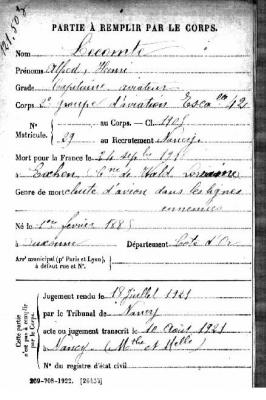 PARTIE À REMPLIR PAR LE CORPS.
Nom Lecomte
Prénoms Alfred, Henri
Grade Capitaine aviateur
Corps 2e groupe d'aviation Esc 42
N° au Corps. — Cl. 1905
Matricule. 29 au Recrutement Nancy
Mort pour la France le 24 sept 191
Lorraine
Genre de mort chute d'avion dans les lignes
ennemies
Né le 1er février 1885
à Auxonne Département Côte d'Or
Arr' municipal (p' Paris et Lyon),
à défaut rue et N°.
Cette partie
n'est pas à remplir
par le Corps.
Jugement rendu le 18 juillet 1921
par le Tribunal de Nancy
acte ou jugement transcrit le 10 août 1921
à Nancy (Mthe et Mlle)
N° du registre d'état civil
269-708-1922. [26435]